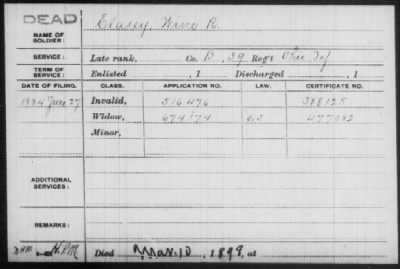 DEAD
NAME OF SOLDIER: Clasey, Wino R.
SERVICE: Late rank, Co. B, 39 Reg't Ohio Inf
TERM OF SERVICE: Enlisted , 1 Discharged , 1
DATE OF FILING. CLASS. APPLICATION NO. LAW. CERTIFICATE NO.
1884 June 27 Invalid, 516476 388125
Widow, 674174 477082
Minor,
ADDITIONAL SERVICES:
REMARKS:
Died Mar. 10, 1898, at